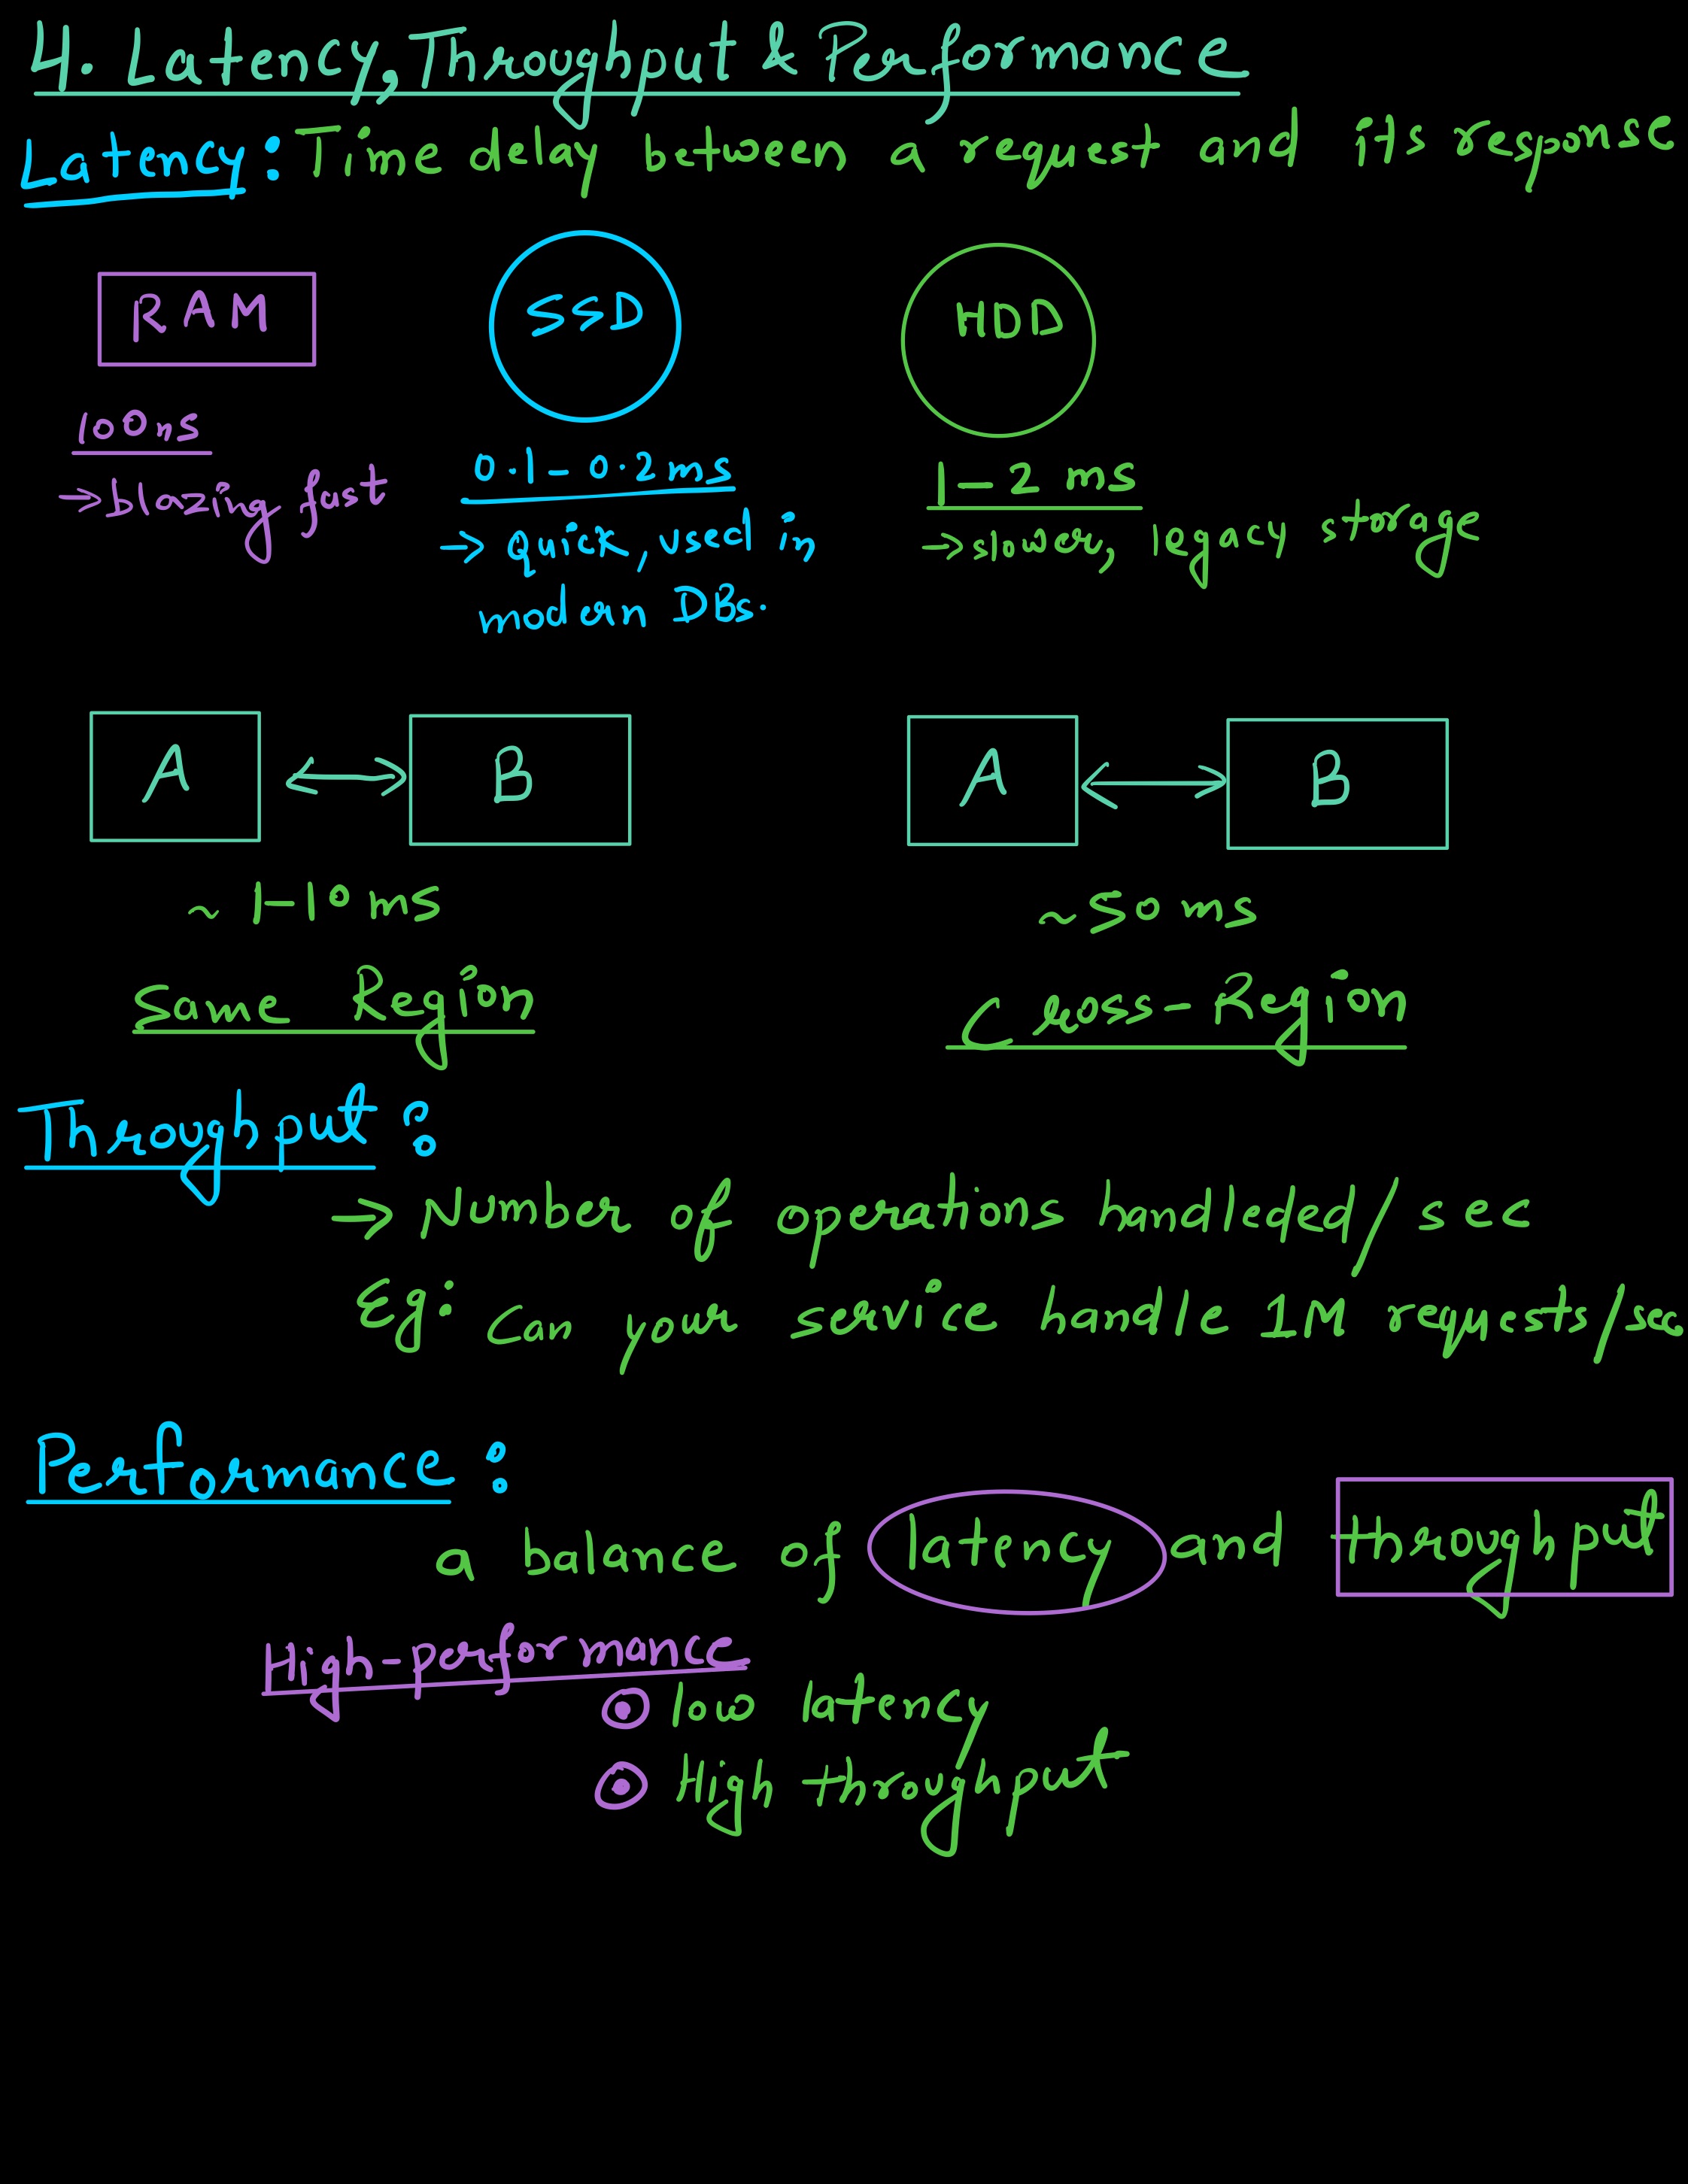 4. Latency, Throughput & Performance
Latency: Time delay between a request and its response
RAM
100ns
→ blazing fast
SSD
0.1 - 0.2 ms
→ Quick, used in
modern DBs.
HDD
1 - 2 ms
→ slower, legacy storage
A ↔ B
~ 1-10 ms
Same Region
A ↔ B
~ 50 ms
Cross-Region
Throughput:
→ Number of operations handleded / sec
Eg: Can your service handle 1M requests/sec
Performance:
a balance of latency and throughput
High-performance
low latency
High throughput